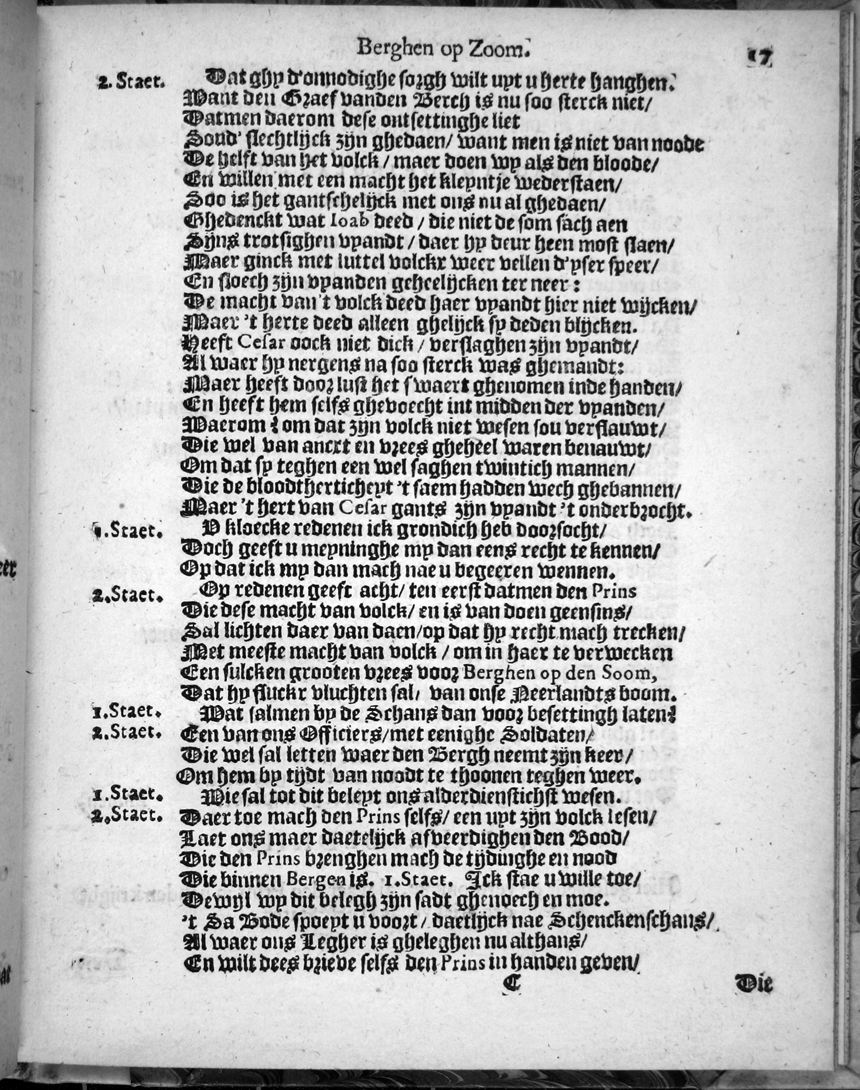 Berghen op Zoom.
17
2. Staet. Dat ghy d'onnodighe sorgh wilt uyt u herte hanghen.
Want den Graef vanden Berch is nu soo sterck niet/
Datmen daerom dese ontsettinghe liet
Soud' slechtlijck zijn ghedaen/ want men is niet van noode
De helft van het volck / maer doen wy als den bloode/
En willen met een macht het kleyntje wederstaen/
Soo is het gantschelijck met ons nu al ghedaen/
Ghedenckt wat Ioab deed / die niet de som sach aen
Sijns trotsighen vyandt / daer hy deur heen most slaen/
Maer ginck met luttel volckx weer vellen d'yser speer/
En sloech zijn vyanden geheelijcken ter neer :
De macht van't volck deed haer vyandt hier niet wijcken/
Maer 't herte deed alleen ghelijck sy deden blijcken.
Heeft Cesar oock niet dick / verslaghen zijn vyandt/
Al waer hy nergens na soo sterck was ghemandt:
Maer heeft door lust het swaert ghenomen inde handen/
En heeft hem selfs ghevoecht int midden der vyanden/
Waerom ? om dat zijn volck niet wesen sou verflauwt/
Die wel van ancxt en vrees gheheel waren benauwt/
Om dat sy teghen een wel saghen twintich mannen/
Die de bloodtherticheyt 't saem hadden wech ghebannen/
Maer 't hert van Cesar gants zijn vyandt 't onderbrocht.
1. Staet. V kloecke redenen ick grondich heb doorsocht/
Doch geeft u meyninghe my dan eens recht te kennen/
Op dat ick my dan mach nae u begeeren wennen.
2. Staet. Op redenen geeft acht/ ten eerst datmen den Prins
Die dese macht van volck/ en is van doen geensins/
Sal lichten daer van daen/op dat hy recht mach trecken/
Met meeste macht van volck / om in haer te verwecken
Een sulcken grooten vrees voor Berghen op den Soom,
Dat hy fluckx vluchten sal, van onse Neerlandts boom.
1. Staet. Wat salmen by de Schans dan voor besettingh laten?
2. Staet. Een van ons Officiers/met eenighe Soldaten/
Die wel sal letten waer den Bergh neemt zijn keer/
Om hem by tijdt van noodt te thoonen teghen weer.
1. Staet. Wie sal tot dit beleyt ons alderdienstichst wesen.
2. Staet. Daer toe mach den Prins selfs/ een uyt zijn volck lesen/
Laet ons maer daetelijck afveerdighen den Bood/
Die den Prins brenghen mach de tijdinghe en nood
Die binnen Bergen is. 1. Staet. Ick stae u wille toe/
Dewijl wy dit belegh zijn sadt ghenoech en moe.
't Sa Bode spoeyt u voort / daetlijck nae Schenckenschans/
Al waer ons Legher is gheleghen nu althans/
En wilt dees brieve selfs den Prins in handen geven/
C
Die